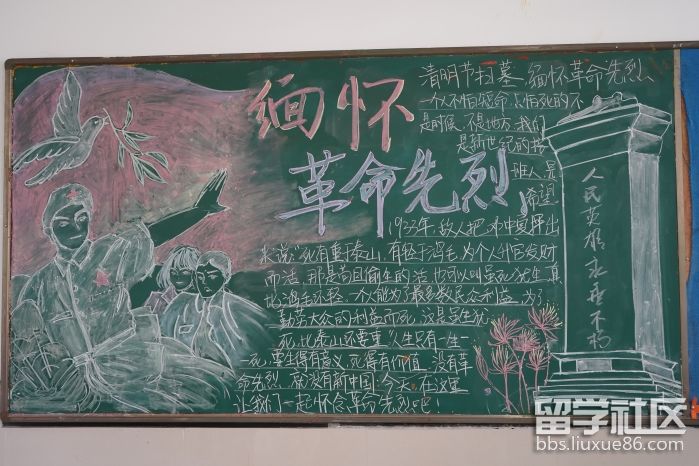 缅怀
革命先烈
清明节扫墓,缅怀革命先烈、
一个人不怕短命,只怕死的不
是时候,不是地方,我们
是新世纪的接
班人,是
希望
1933年,敌人把邓中夏押出
来说:"死有重于泰山,有轻于鸿毛,为个人升官发财
而活,那是苟且偷生的活,也可以叫虽死犹生,真
比鸿毛还轻.一个人能为了最多数民众利益,为了
勤劳大众的利益而死,这是虽生犹
死,比泰山还要重.人生只有一生一
死,要生得有意义,死得有价值.没有革
命先烈,就没有新中国,今天,在这里
让我们一起怀念革命先烈吧!
人民英雄永垂不朽
留学社区
bbs.liuxue86.com